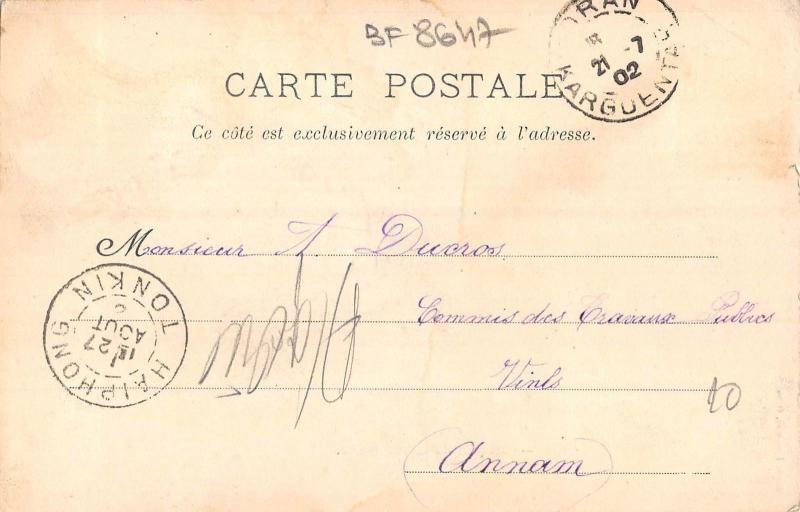 BF 8647
ORAN
21 -7
02
KARGUENTAH
CARTE POSTALE
Ce côté est exclusivement réservé à l'adresse.
Monsieur A. Ducros
Commis des Travaux Publics
Vinh
Annam
HAIPHONG TONKIN
27
AOUT
10